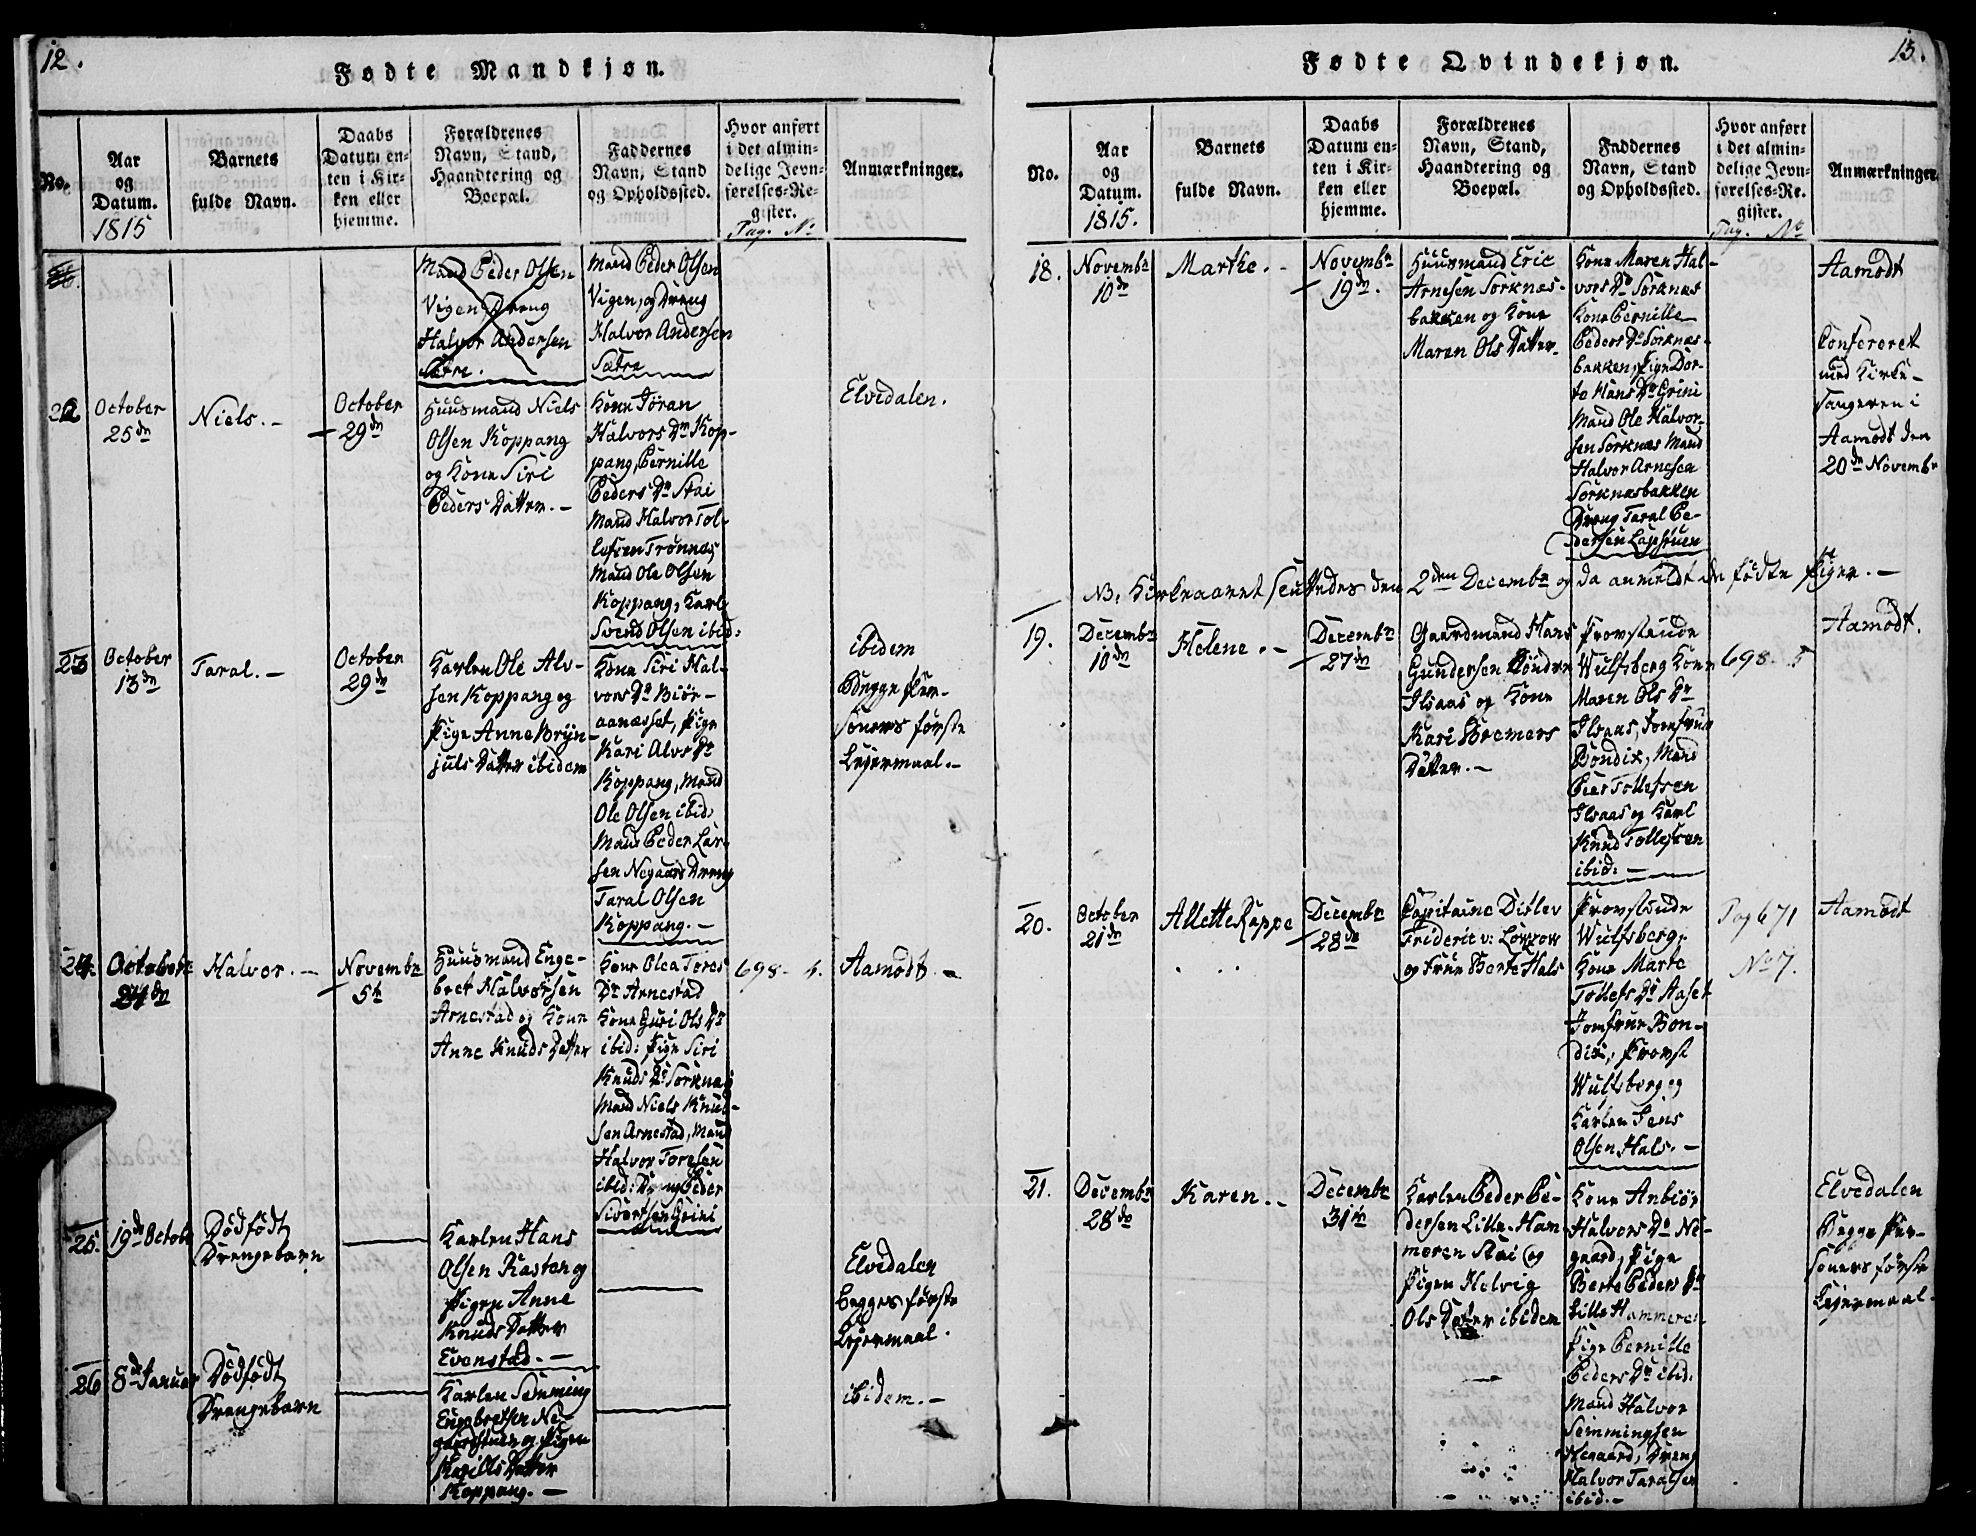 12.
Fødte Mandkjøn.
No.
Aar
og
Datum.
1815
Barnets
fulde Navn.
Daabs
Datum en-
ten i Kir-
ken eller
hjemme.
Forældrenes
Navn, Stand,
Haandtering og
Boepæl.
Faddernes
Navn, Stand
og Opholdssted.
Hvor anført
i det almin-
delige Jevn-
førelses-Re-
gister.
Pag. No
Anmærkninger.
Mand Peder Olsen
Vigen, Dreng
Halvor Andersen
Sætre.
Mand Peder Olsen
Vigen, og Dreng
Halvor Andersen
Sætre
22
October
25de
Niels. -
October
29de
Huusmand Niels
Olsen Koppang
og Kone Siri
Peders Datter. -
Kone Jøran
Halvors Dr Kop-
pang, Pernille
Peders Dr Stai
Mand Halvor Tol-
lefsen Trønnæs
Mand Ole Olsen
Koppang, Karl
Svend Olsen ibid:
Elvedalen.
23
October
13de
Taral. -
October
29de
Karlen Ole Alv-
sen Koppang og
Pige Anne Bryn-
juls Datter ibidem
Kone Siri Hal-
vors Dr Biør-
aanæsset, Pige
Kari Alvs Dr
Koppang, Mand
Ole Olsen ibid:
Mand Peder Lar-
sen Negaard Dreng
Taral Olsen
Koppang. -
ibidem
Begge Per-
soners første
Leiermaal. -
24.
October
24de
Halvor. -
Novembr
5te
Huusmand Enge-
bret Halvorsen
Arnestad og Kone
Anne Knuds Datter
Kone Olea Tores
Dr Arnestad
Kone Guri Ols Dr
ibid: Pige Siri
Knuds Dr Sorknæs
Mand Niels Knud-
sen Arnestad, Mand
Halvor Toresen
ibid: Dreng Peder
Sivertsen Grini
698. 4.
Aamodt. -
25.
19de Octobr
Dødfødt
Drengebarn
Karlen Hans
Olsen Rasten og
Pigen Anne
Knuds Datter
Evenstad. -
Elvedalen
Begges første
Leiermaal.
26
8de Januar
Dødfødt
Drengebarn
Karlen Semming
Engebretsen Ne-
gaardstuen og Pigen
Kari Ols Datter
Koppang. -
ibidem. -
13.
Fødte Qvindekjøn.
No.
Aar
og
Datum.
1815.
Barnets
fulde Navn.
Daabs
Datum en-
ten i Kir-
ken eller
hjemme.
Forældrenes
Navn, Stand,
Haandtering og
Boepæl.
Faddernes
Navn, Stand
og Opholdssted.
Hvor anført
i det almin-
delige Jevn-
førelses-Re-
gister.
Pag. No
Anmærkninger.
18.
Novembr
10de
Marthe. -
Novembr
19de.
Huusmand Eric
Arnesen Sorknæs-
bakken og Kone
Maren Ols Datter
Kone Maren Hal-
vors Dr Sorknæs
Kone Pernille
Peders Dr Sorknæs-
bakken, Pige Dor-
te Hans Dr Grini
Mand Ole Halvor-
sen Sorknæs Mand
Halvor Arnesen
Sorknæsbakken
Dreng Taral Pe-
dersen Lapstuen
Aamodt
Confereret
med Kirke-
sangeren i
Aamodt den
20de Novembr
NB. Kirkeaaret sluttedes den 2den Decembr og da anmeldt de fødte Piger. -
19.
Decembr
10de
Helene. -
Decembr
27de
Gaardmand Hans
Gundersen Søndre
Ilsaas og Kone
Kari Bremers
Datter. -
Provstinde
Wulfsberg Kone
Maren Ols Dr
Ilsaas, Jomfrue
Bondix, Mand
Peer Tollefsen
Ilsaas og Karl
Knud Tollefsen
ibid: -
698. 5
Aamodt.
20.
October
21de
Allette Kappe
Decembr
28de
Capitaine Ditlev
Frideric v: Lowzow
og Frue Berte Hals
Provstinde
Wulfsberg,
Kone Marte
Tollefs Dr Aaset
Jomfrue Bon-
dix, Provst
Wulfsberg og
Karlen Jens
Olsen Hals. -
Pag 671
No 7.
Aamodt
21.
Decembr
28de
Karen. -
Decembr
31te
Karlen Peder Pe-
dersen Lille-Ham-
meren Stai og
Pigen Helvig
Ols Datter ibidem
Kone Anbiør
Halvors Dr Ne-
gaard, Pige
Berte Peders Dr
Lille Hammeren
Pige Pernille
Peders Dr ibid.
Mand Halvor
Semmingsen
Negaard, Dreng
Halvor Taralsen
ibid. -
Elvedalen
Begge Per-
soners første
Leiermaal.